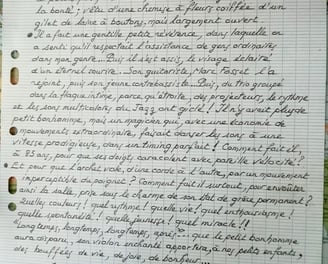 la bonté ; vêtu d'une chemise à fleurs coiffée d'un
gilet de laine à boutons, mais largement ouvert.
Il a fait une gentille petite révérence, dans laquelle on
a senti qu'il respectait l'assistance de gens ordinaires
dans mon genre. Puis il s'est assis, le visage éclairé
d'un éternel sourire. Son guitariste, Marc Fosset l'a
rejoint, puis son jeune contrebassiste. Puis, du trio groupé
dans la plaque intime, parce qu'étroite, des projecteurs, le rythme
et les sons multicolores du Jazz ont giclé ! Il n'y avait plus de
petit bonhomme, mais un magicien qui, avec une économie de
mouvements extraordinaire, faisait danser les sons à une
vitesse prodigieuse, dans un timing parfait ! Comment fait-il,
à 83 ans, pour que ses doigts caracolent avec pareille vélocité ?
Et pour que l'archet vole, d'une corde à l'autre, par un mouvement
imperceptible du poignet ? Comment fait-il surtout, pour envoûter
ainsi la salle, prise sous le charme de son état de grâce permanent ?
Quelles couleurs ! quel rythme ! quelle vie ! quel enthousiasme !
quelle spontanéité ! quelle jeunesse ! quel miracle !!
Longtemps, longtemps, longtemps, après... que le petit bonhomme
aura disparu, son violon enchanté apportera, à nos petits enfants,
des bouffées de vie, de joie, de bonheur...